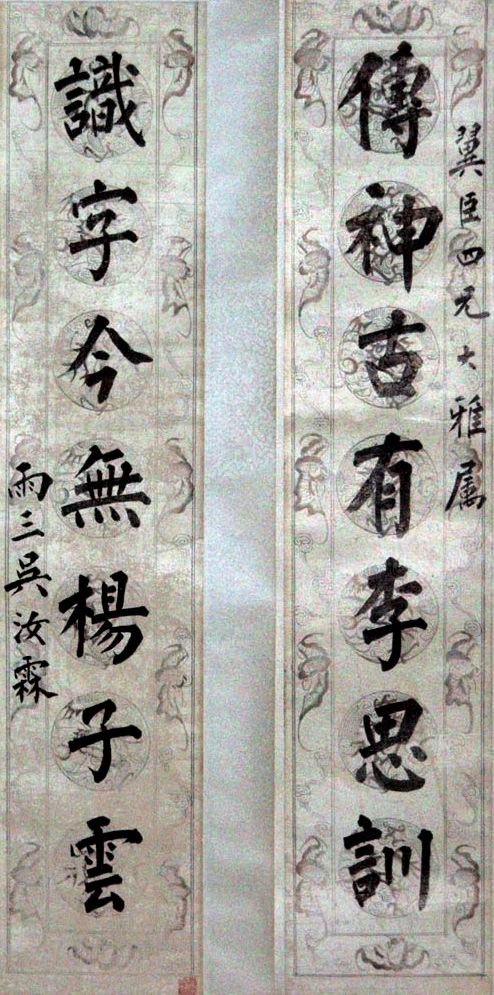 翼臣四兄大雅属
傳神古有李思訓
識字今無楊子雲
雨三吳汝霖